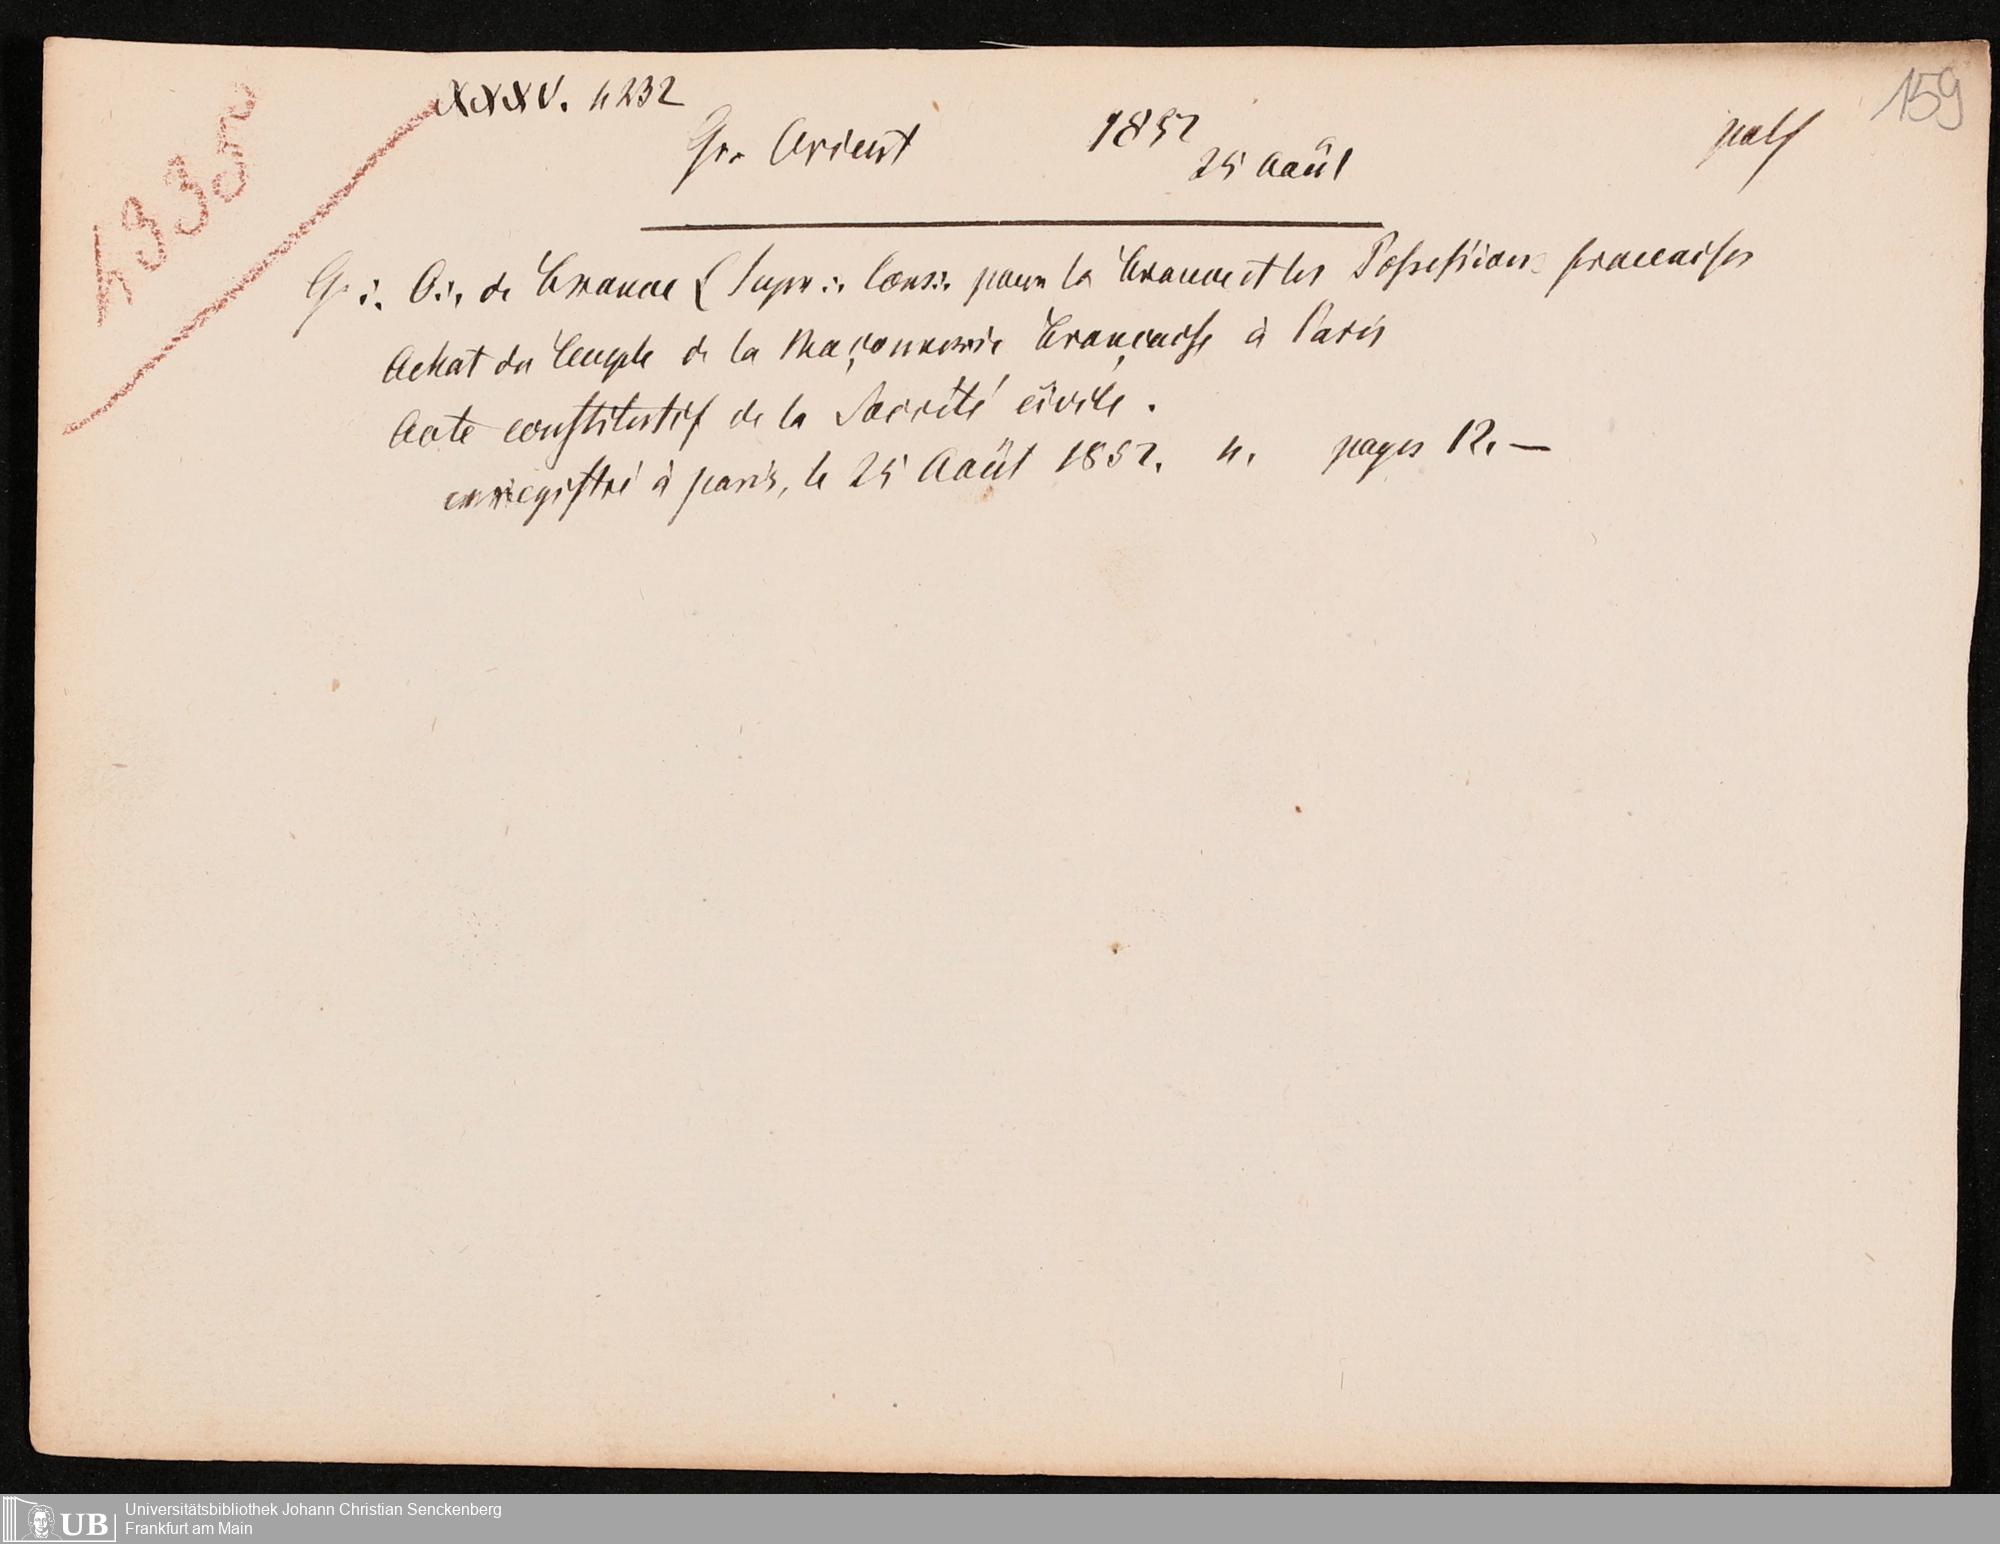 159
XXXV. 4232
Gr. Orient 1852
25 Août
G∴ O∴ de France (Supr∴ Cons∴ pour la France et les Possessions francaises
Achat du Temple de la Maçonnerie Française à Paris
Acte constitutif de la Société civile.
enregistré à paris, le 25 Août 1852. 4. pages 12. —
UB
Universitätsbibliothek Johann Christian Senckenberg
Frankfurt am Main